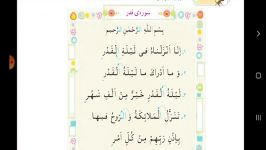 سوره‌ی قدر
بِسْمِ اللّٰهِ الرَّحْمٰنِ الرَّحیمِ
۱. اِنّا اَنْزَلْناهُ فی لَیْلَةِ الْقَدْرِ
۲. وَ ما اَدْراكَ ما لَیْلَةُ الْقَدْرِ
۳. لَیْلَةُ الْقَدْرِ خَیْرٌ مِنْ اَلْفِ شَهْرٍ
۴. تَنَزَّلُ الْمَلائِكَةُ وَ الرُّوحُ فیها
بِاِذْنِ رَبِّهِمْ مِنْ كُلِّ اَمْرٍ